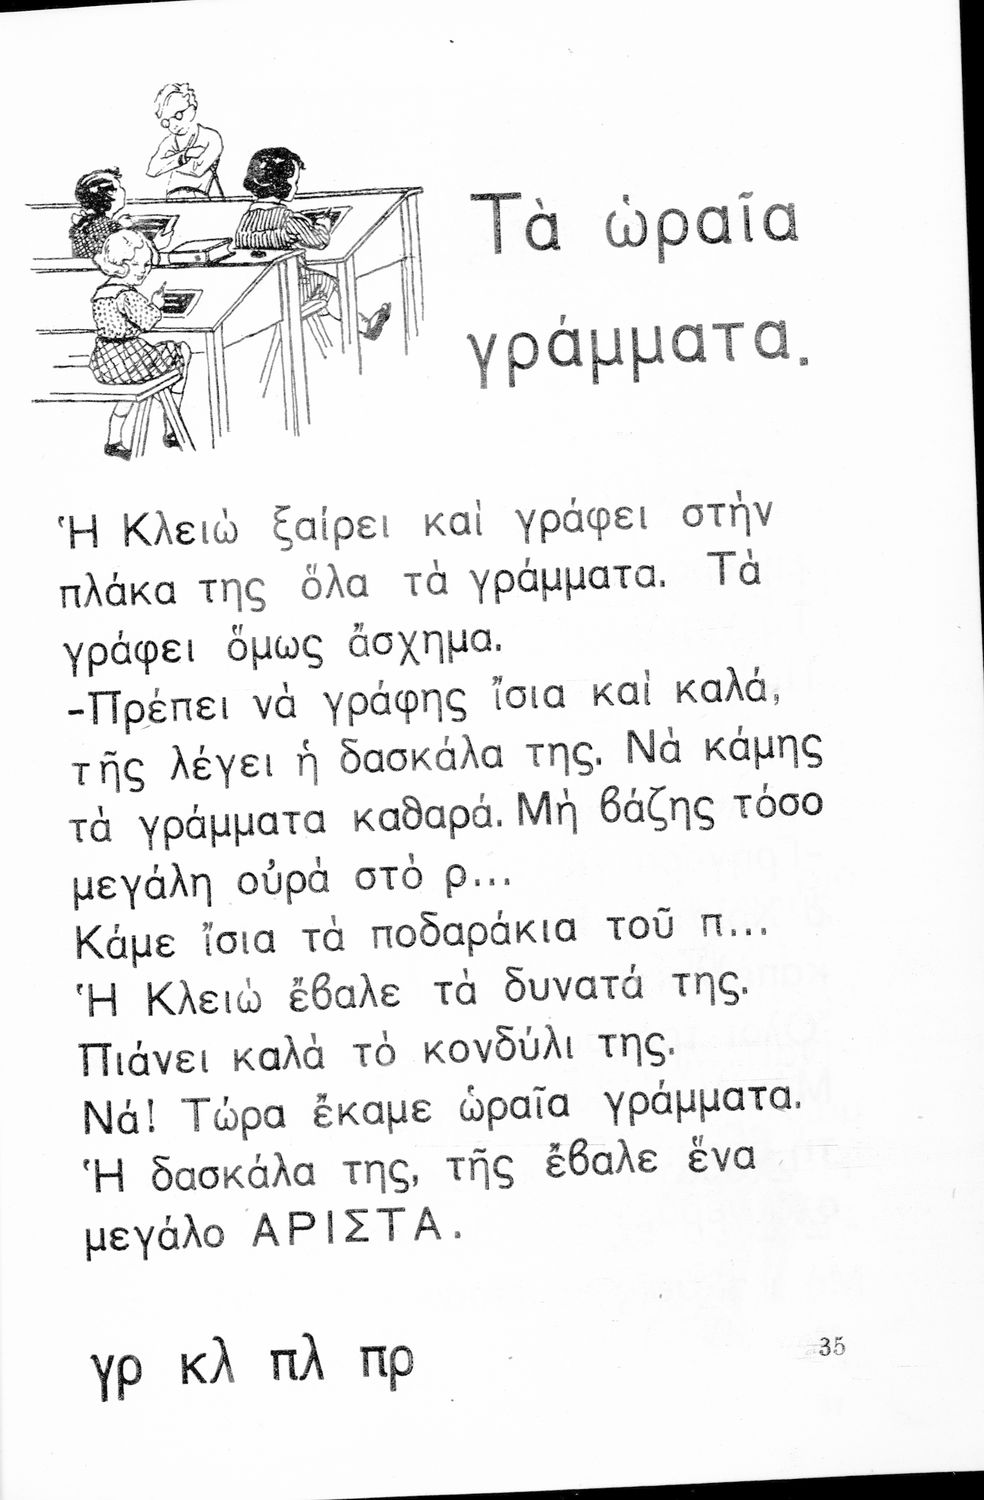 Τὰ ὡραῖα
γράμματα.
Ἡ Κλειὼ ξαίρει καὶ γράφει στὴν
πλάκα της ὅλα τὰ γράμματα. Τὰ
γράφει ὅμως ἄσχημα.
-Πρέπει νὰ γράφης ἴσια καὶ καλά,
τῆς λέγει ἡ δασκάλα της. Νὰ κάμης
τὰ γράμματα καθαρά. Μὴ βάζης τόσο
μεγάλη οὐρὰ στὸ ρ...
Κάμε ἴσια τὰ ποδαράκια τοῦ π...
Ἡ Κλειὼ ἔβαλε τὰ δυνατά της.
Πιάνει καλὰ τὸ κονδύλι της.
Νά! Τώρα ἔκαμε ὡραῖα γράμματα.
Ἡ δασκάλα της, τῆς ἔβαλε ἕνα
μεγάλο ΑΡΙΣΤΑ.
γρ κλ πλ πρ
35